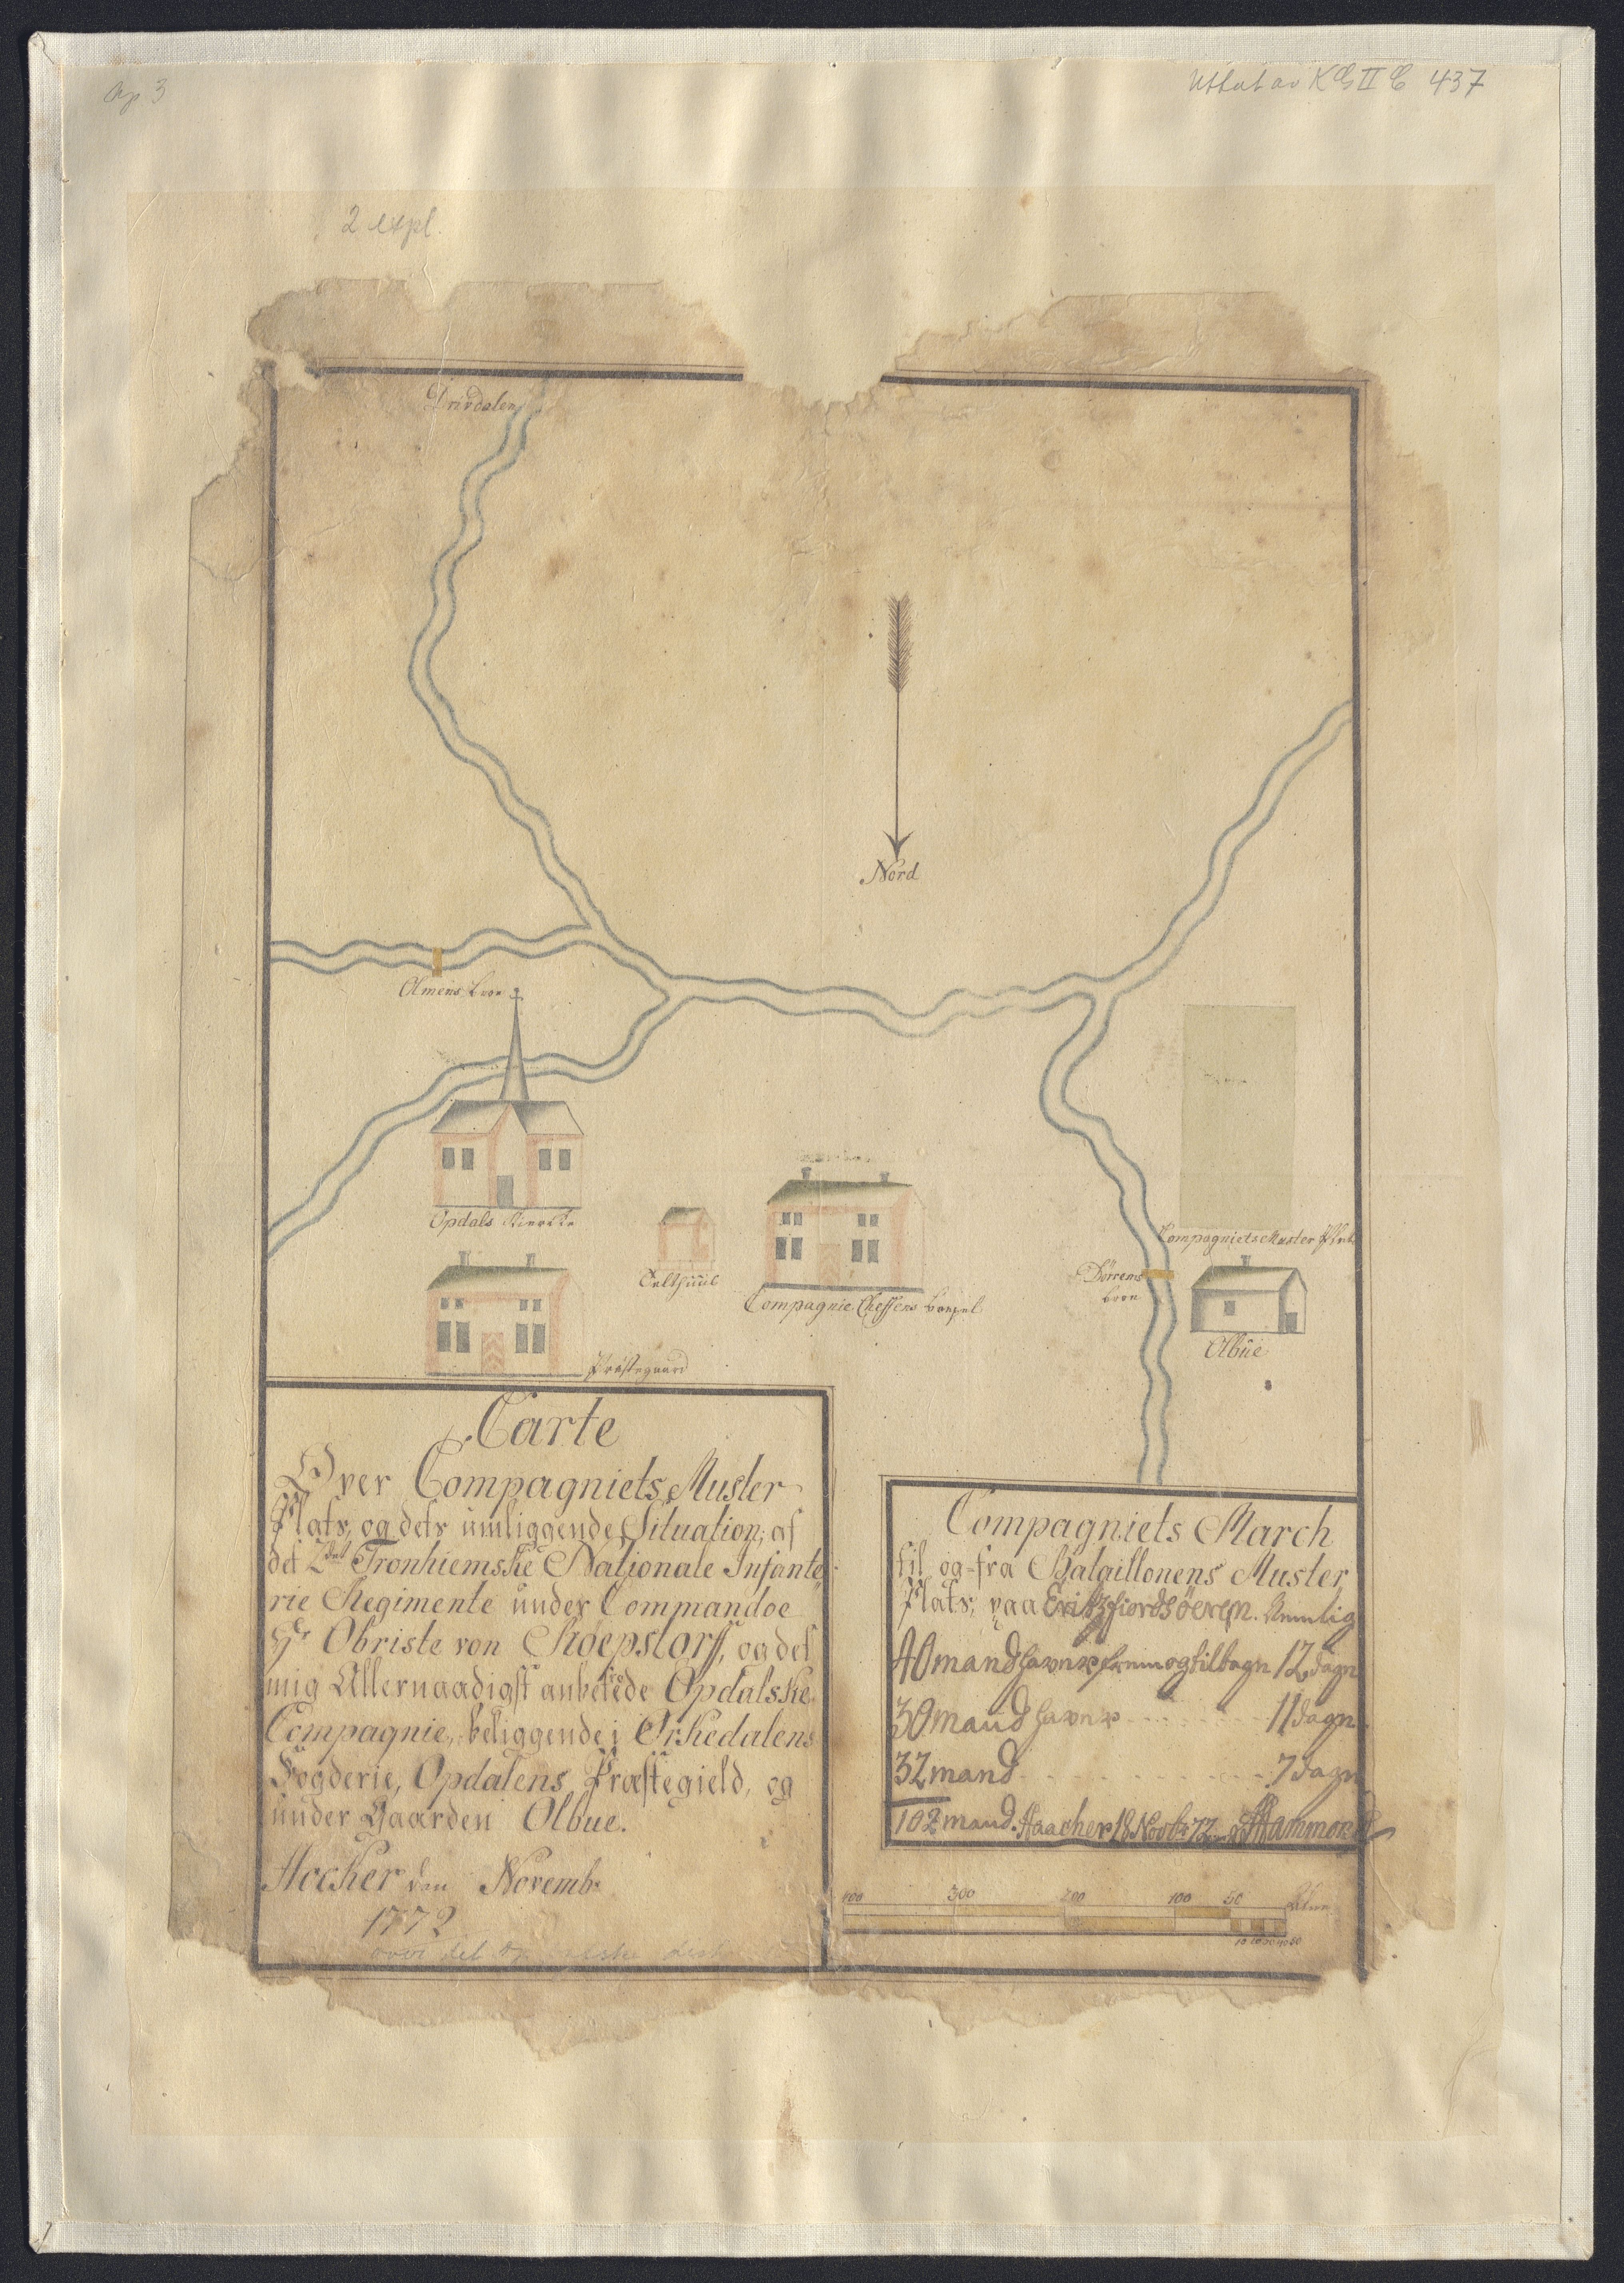 437
2 expl.
Drivdalen
Nord
Olmens broe
Opdals Kierke
Teltshuus
Compagnie Cheffens
Compagniets Muster Plats
Dörrems
broe
Olbüe
Præstegaard
Carte
Over Compagniets Muster
Plats, og dets ümliggende Situation, af
det 2det Tronhiemske Nationale Infante
rie Regimente ünder Commandoe
Hr Obriste von Kroepstorff, og det
mig Allernaadigst anbetroede Opdalske
Compagnie, beliggende i Orkedalens
Fogderie, Opdalens Præstegield, og
ünder Gaarden Olbue.
Hocker den Novembr
1772
over det
Compagniets March
til og fra Bataillonens Muster
Plats, paa Eritzfiords öeren. Nemlig
40 mand frem og tilbage 12 dage
30 mand 11 dage
32 mand 7 dage
102 mand. Haacker 18 Novbr 72 Hammond
400 300 200 100 50 Alen
10 20 30 40 50